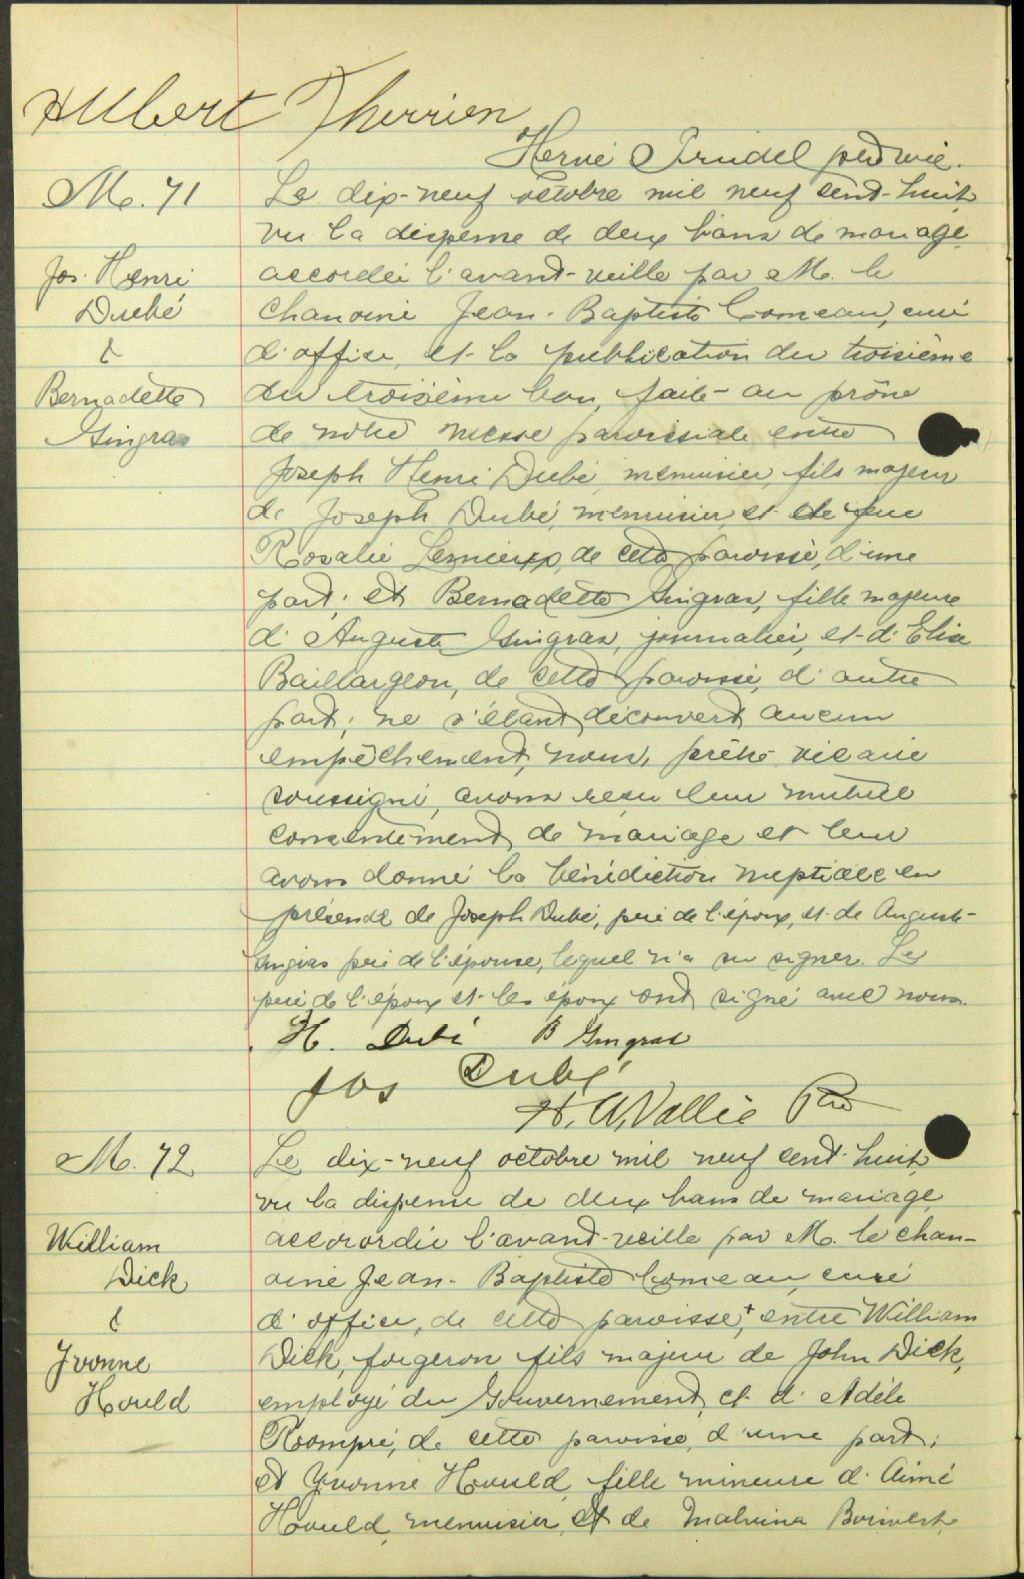 Hubert Therrien
Hervé Trudel ptre vic.
M. 71
Le dix-neuf octobre mil neuf cent-huit,
vu la dispense de deux bans de mariage
Jos. Henri
accordée l'avant-veille par M. le
Dubé
chanoine Jean-Baptiste Comeau, curé
&
d'office, et la publication du troisième
Bernadette
du troisième ban, faite au prône
Gingras
de notre messe paroissiale entre
Joseph Henri Dubé, menuisier, fils majeur
de Joseph Dubé, menuisier, et de feue
Rosalie Lemieux, de cette paroisse, d'une
part; et Bernadette Gingras, fille majeure
d'Auguste Gingras, journalier, et d'Elise
Baillargeon, de cette paroisse, d'autre
part; ne s'étant découvert aucun
empêchement, nous, prêtre vicaire
soussigné, avons reçu leur mutuel
consentement de mariage et leur
avons donné la bénédiction nuptiale en
présence de Joseph Dubé, père de l'époux, et de Auguste
Gingras père de l'épouse, lequel n'a su signer. Le
père de l'époux et les époux ont signé avec nous.
H. Dubé B Gingras
Jos Dubé
H. A. Vallée Ptre
M. 72
Le dix-neuf octobre mil neuf cent-huit,
vu la dispense de deux bans de mariage
William
accrordée l'avant-veille par M. le chan-
Dick
oine Jean-Baptiste Comeau, curé
&
d'office, de cette paroisse,+ entre William
Yvonne
Dick, forgeron fils majeur de John Dick,
Hould
employé du Gouvernement, et d'Adèle
Rompré, de cette paroisse, d'une part;
et Yvonne Hould, fille mineure d'Aimé
Hould, menuisier, et de Malvina Boisvert,